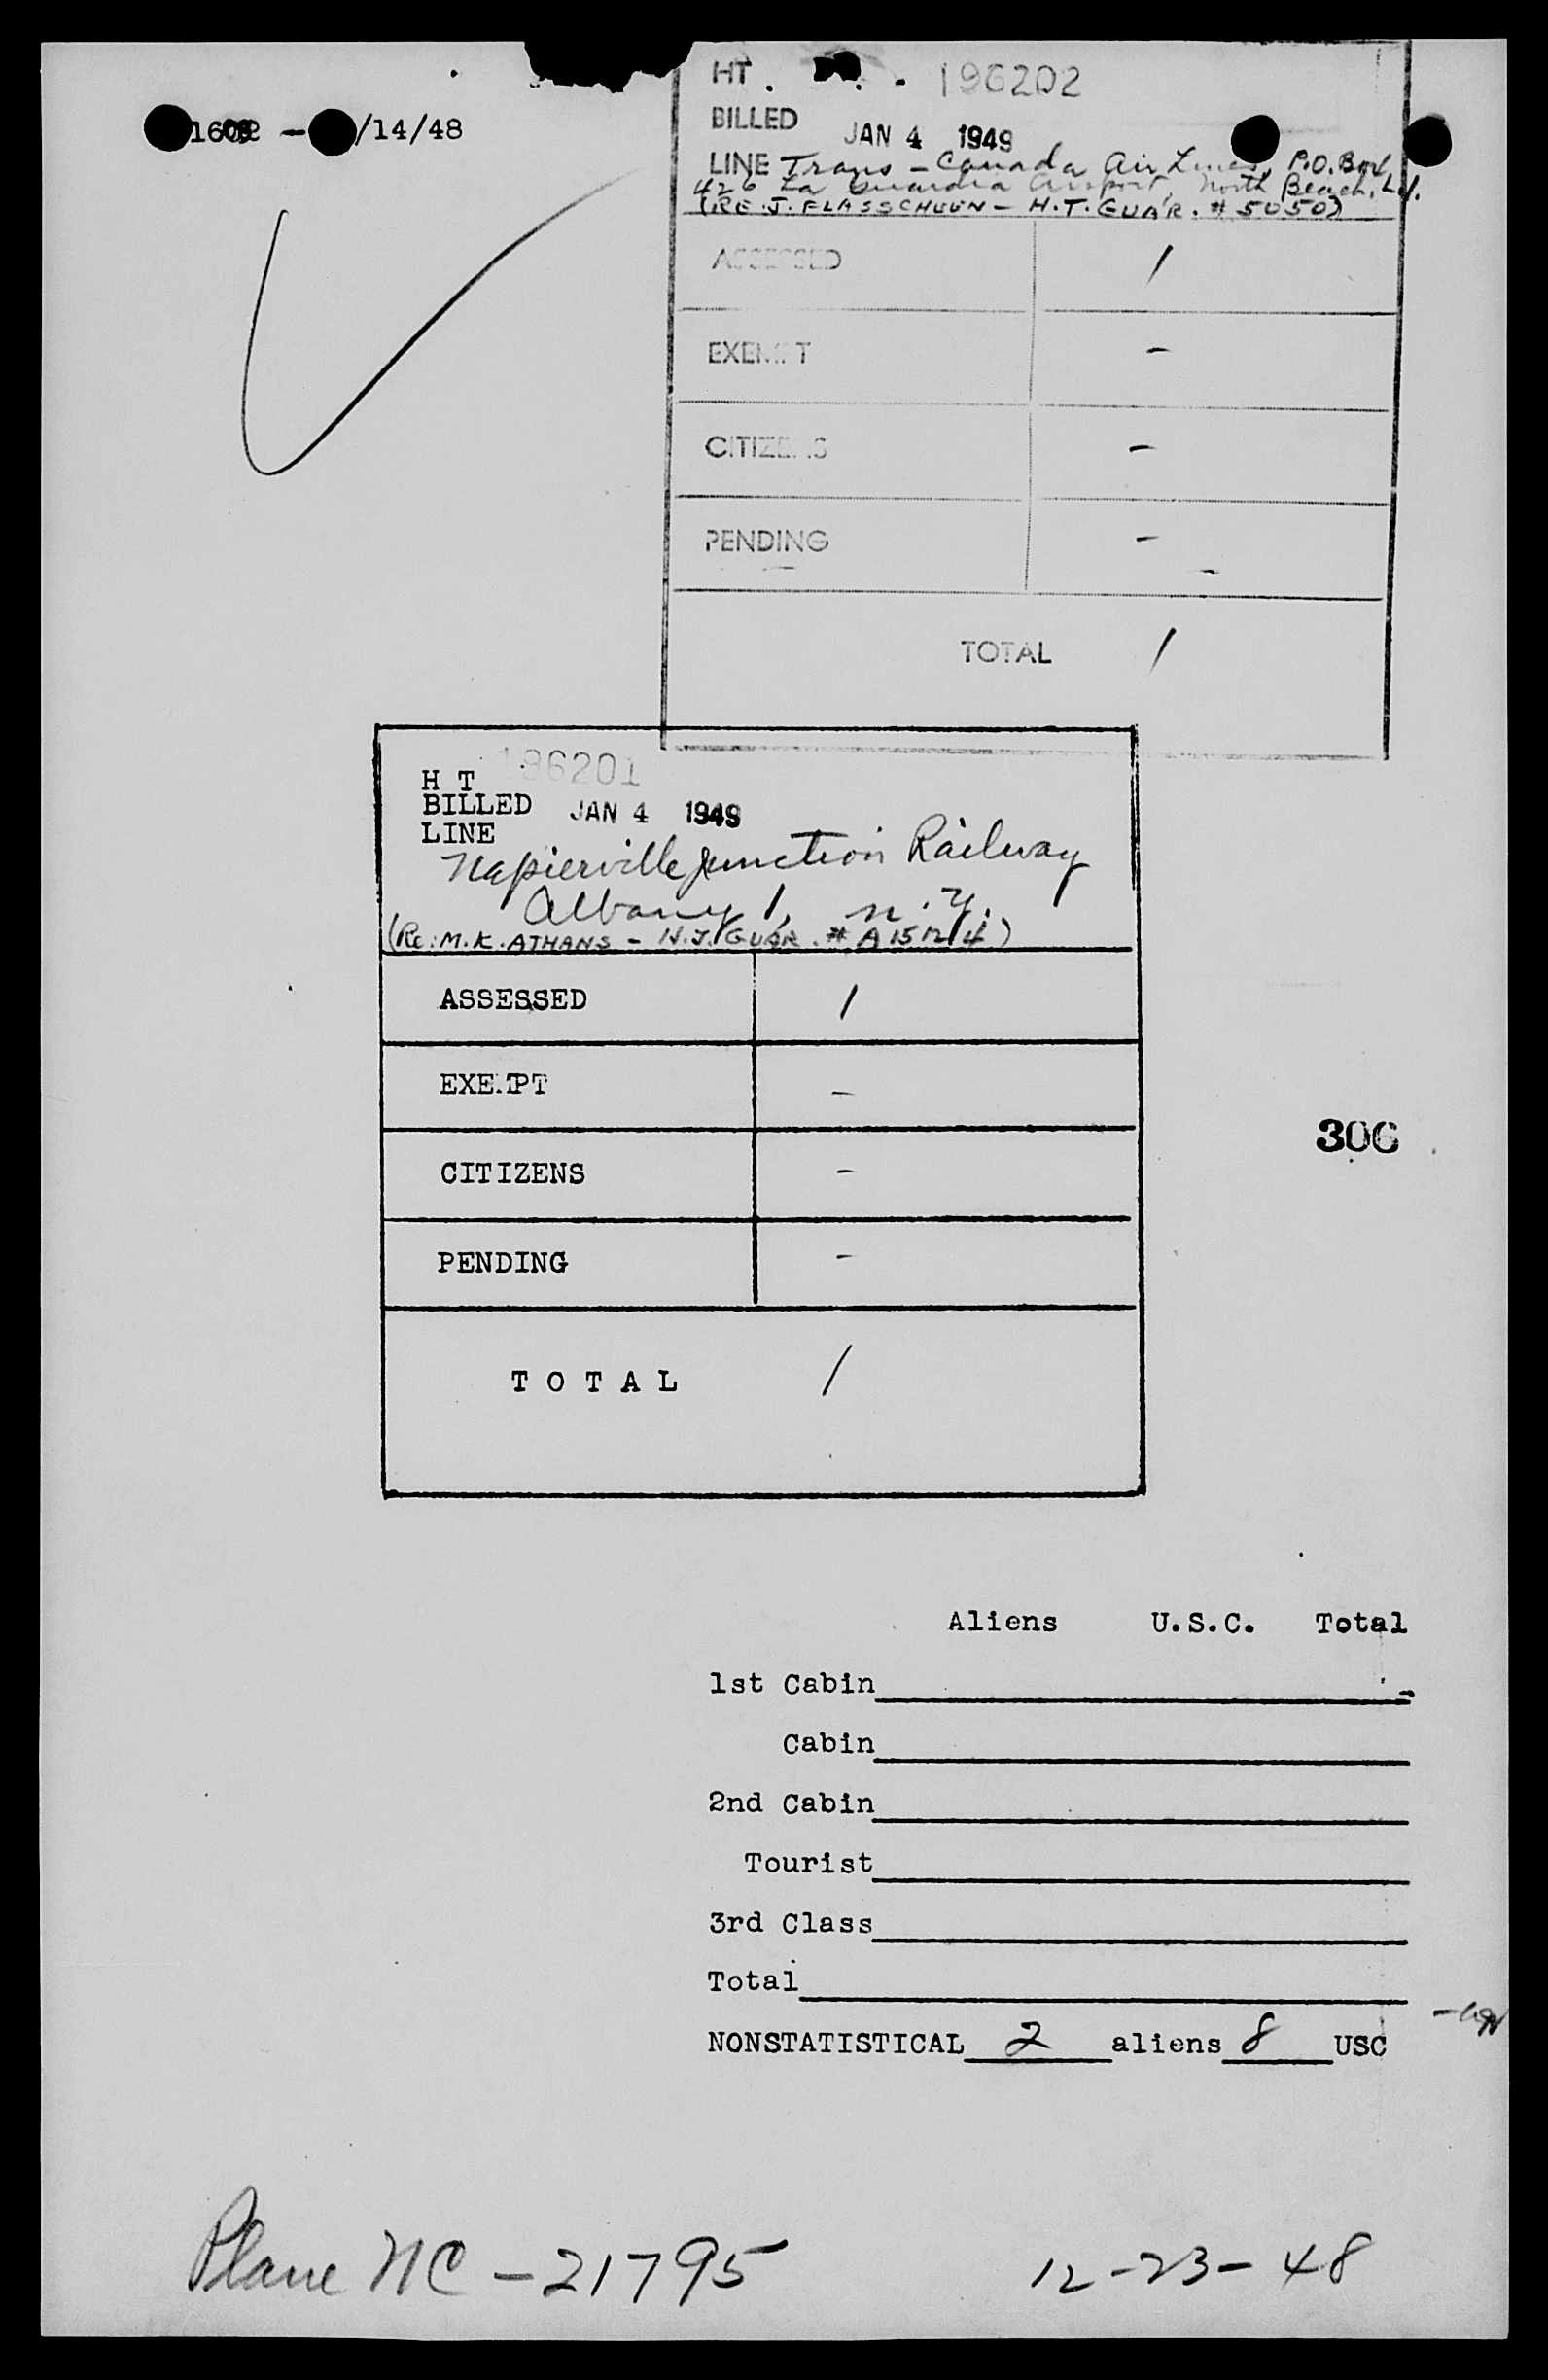 /14/48
HT 196202
BILLED JAN 4 1949
LINE Trans-Canada Air Lines, P.O. Box
426 La Guardia Airport, North Beach, L.I.
(RE. J. FLASSCHOEN - H.T. GUAR. # 5050)
ASSESSED /
EXEMPT -
CITIZENS -
PENDING -
TOTAL /
196201
H T
BILLED JAN 4 1949
LINE
Napierville Junction Railway
Albany 1, N.Y.
(RE: M.K. ATHANS - H.T. GUAR. # A15124)
ASSESSED /
EXEMPT -
CITIZENS -
PENDING -
306
T O T A L /
Aliens U.S.C. Total
1st Cabin
Cabin
2nd Cabin
Tourist
3rd Class
Total
NONSTATISTICAL 2 aliens 8 USC
Plane NC-21795 12-23-48